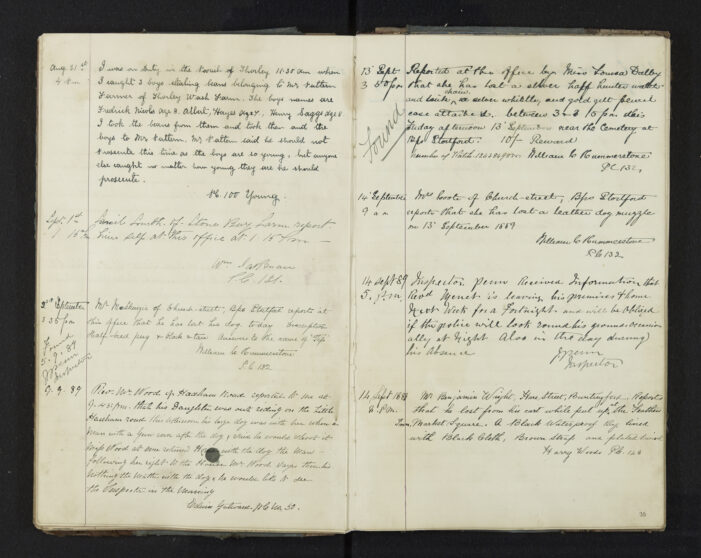 Aug 21st
4 pm
I was on duty in the Parish of Thorley 11.30 am when
I caught 3 boys stealing beans belonging to Mr Patten
Farmer of Thorley Wash Farm. The boys names are
Fredrick Nicols age 8. Albert Hayes age 7, Henry Saggs age 8
I took the beans from them and took them and the
boys to Mr Patten. Mr Patten said he should not
Prosecute this time as the boys are so young, but anyone
else caught no matter how young they are he should
prosecute.
PC 100 Young.
Sept. 1st
1. 15 Pm
Smith of Stone Farm report
self at this office at 1.15 Pm
Wm
P.C.
September
5.35 pm
Mr of Church street, Bps Stortford reports at
this office that he has lost his dog today
Half bred pug Answers to the name of
William C Rummerstone
P.C. 132
Found
5.9.89
J Penn
Inspector
9.9.89
Revd Mr Wood of Hadham Road reported to me at
9.45 pm. that his Daughter was out riding on the Little
Hadham road this afternoon his large dog was with her when a
man with a gun ran after the dog, said he would shoot it
Miss Wood at once with the dog the Man
following her right to the House Mr Wood says there is
nothing the matter with the dog, he would like to see
the Inspector in the Morning
Edwin P.C. No. 50.
13 Sept
3 50 pm
Reported at this office by Miss Louisa Dalby
that she has lost a silver half hunter watch
chain
and a silver whistle, and gold
case attached. between 3 & 3.15 pm this
Friday afternoon 13 September near the Cemetery at
Bps Stortford. 10/- Reward
Number of Watch William C Rummerstone
P.C. 132,
Found
14 September
9 am
Mrs Foote of Church-street, Bps Stortford
reports that she has lost a leather dog muzzle
on 13 September 1889
William C Rummerstone
P.C. 132
14 Sept 89
5. P.m.
Inspector Penn Received Information that
Revd Menet is leaving his premises & home
Next Week for a Fortnight. and will be Obliged
if the police will look round his grounds occasion
ally at Night Also in the day during
his Absence
J Penn
Inspector
14 Sept 1889
8 P.m.
Mr Benjamin Wright, Hare Street, Buntingford, Reports
that he lost from his cart while put up, the Feathers
Inn, Market Square. A Black Waterproof Rug lined
with Black Cloth, Brown Strap and
Harry Wood PC 124